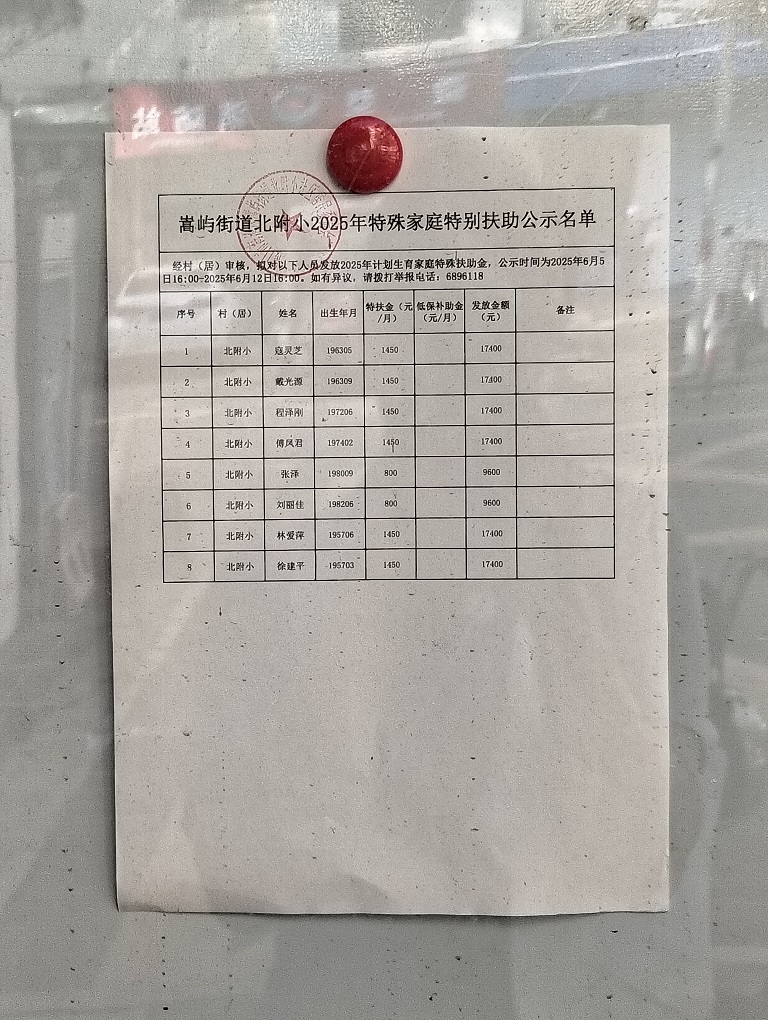 嵩屿街道北附小2025年特殊家庭特别扶助公示名单
经村（居）审核，拟对以下人员发放2025年计划生育家庭特殊扶助金，公示时间为2025年6月5
日16:00-2025年6月12日16:00。如有异议，请拨打举报电话：6896118
序号 村（居） 姓名 出生年月 特扶金（元/月） 低保补助金（元/月） 发放金额（元） 备注
1 北附小 寇灵芝 196305 1450 17400
2 北附小 戴光源 196309 1450 17400
3 北附小 程泽刚 197206 1450 17400
4 北附小 傅凤君 197402 1450 17400
5 北附小 张泽 198009 800 9600
6 北附小 刘丽佳 198206 800 9600
7 北附小 林爱萍 195706 1450 17400
8 北附小 徐建平 195703 1450 17400